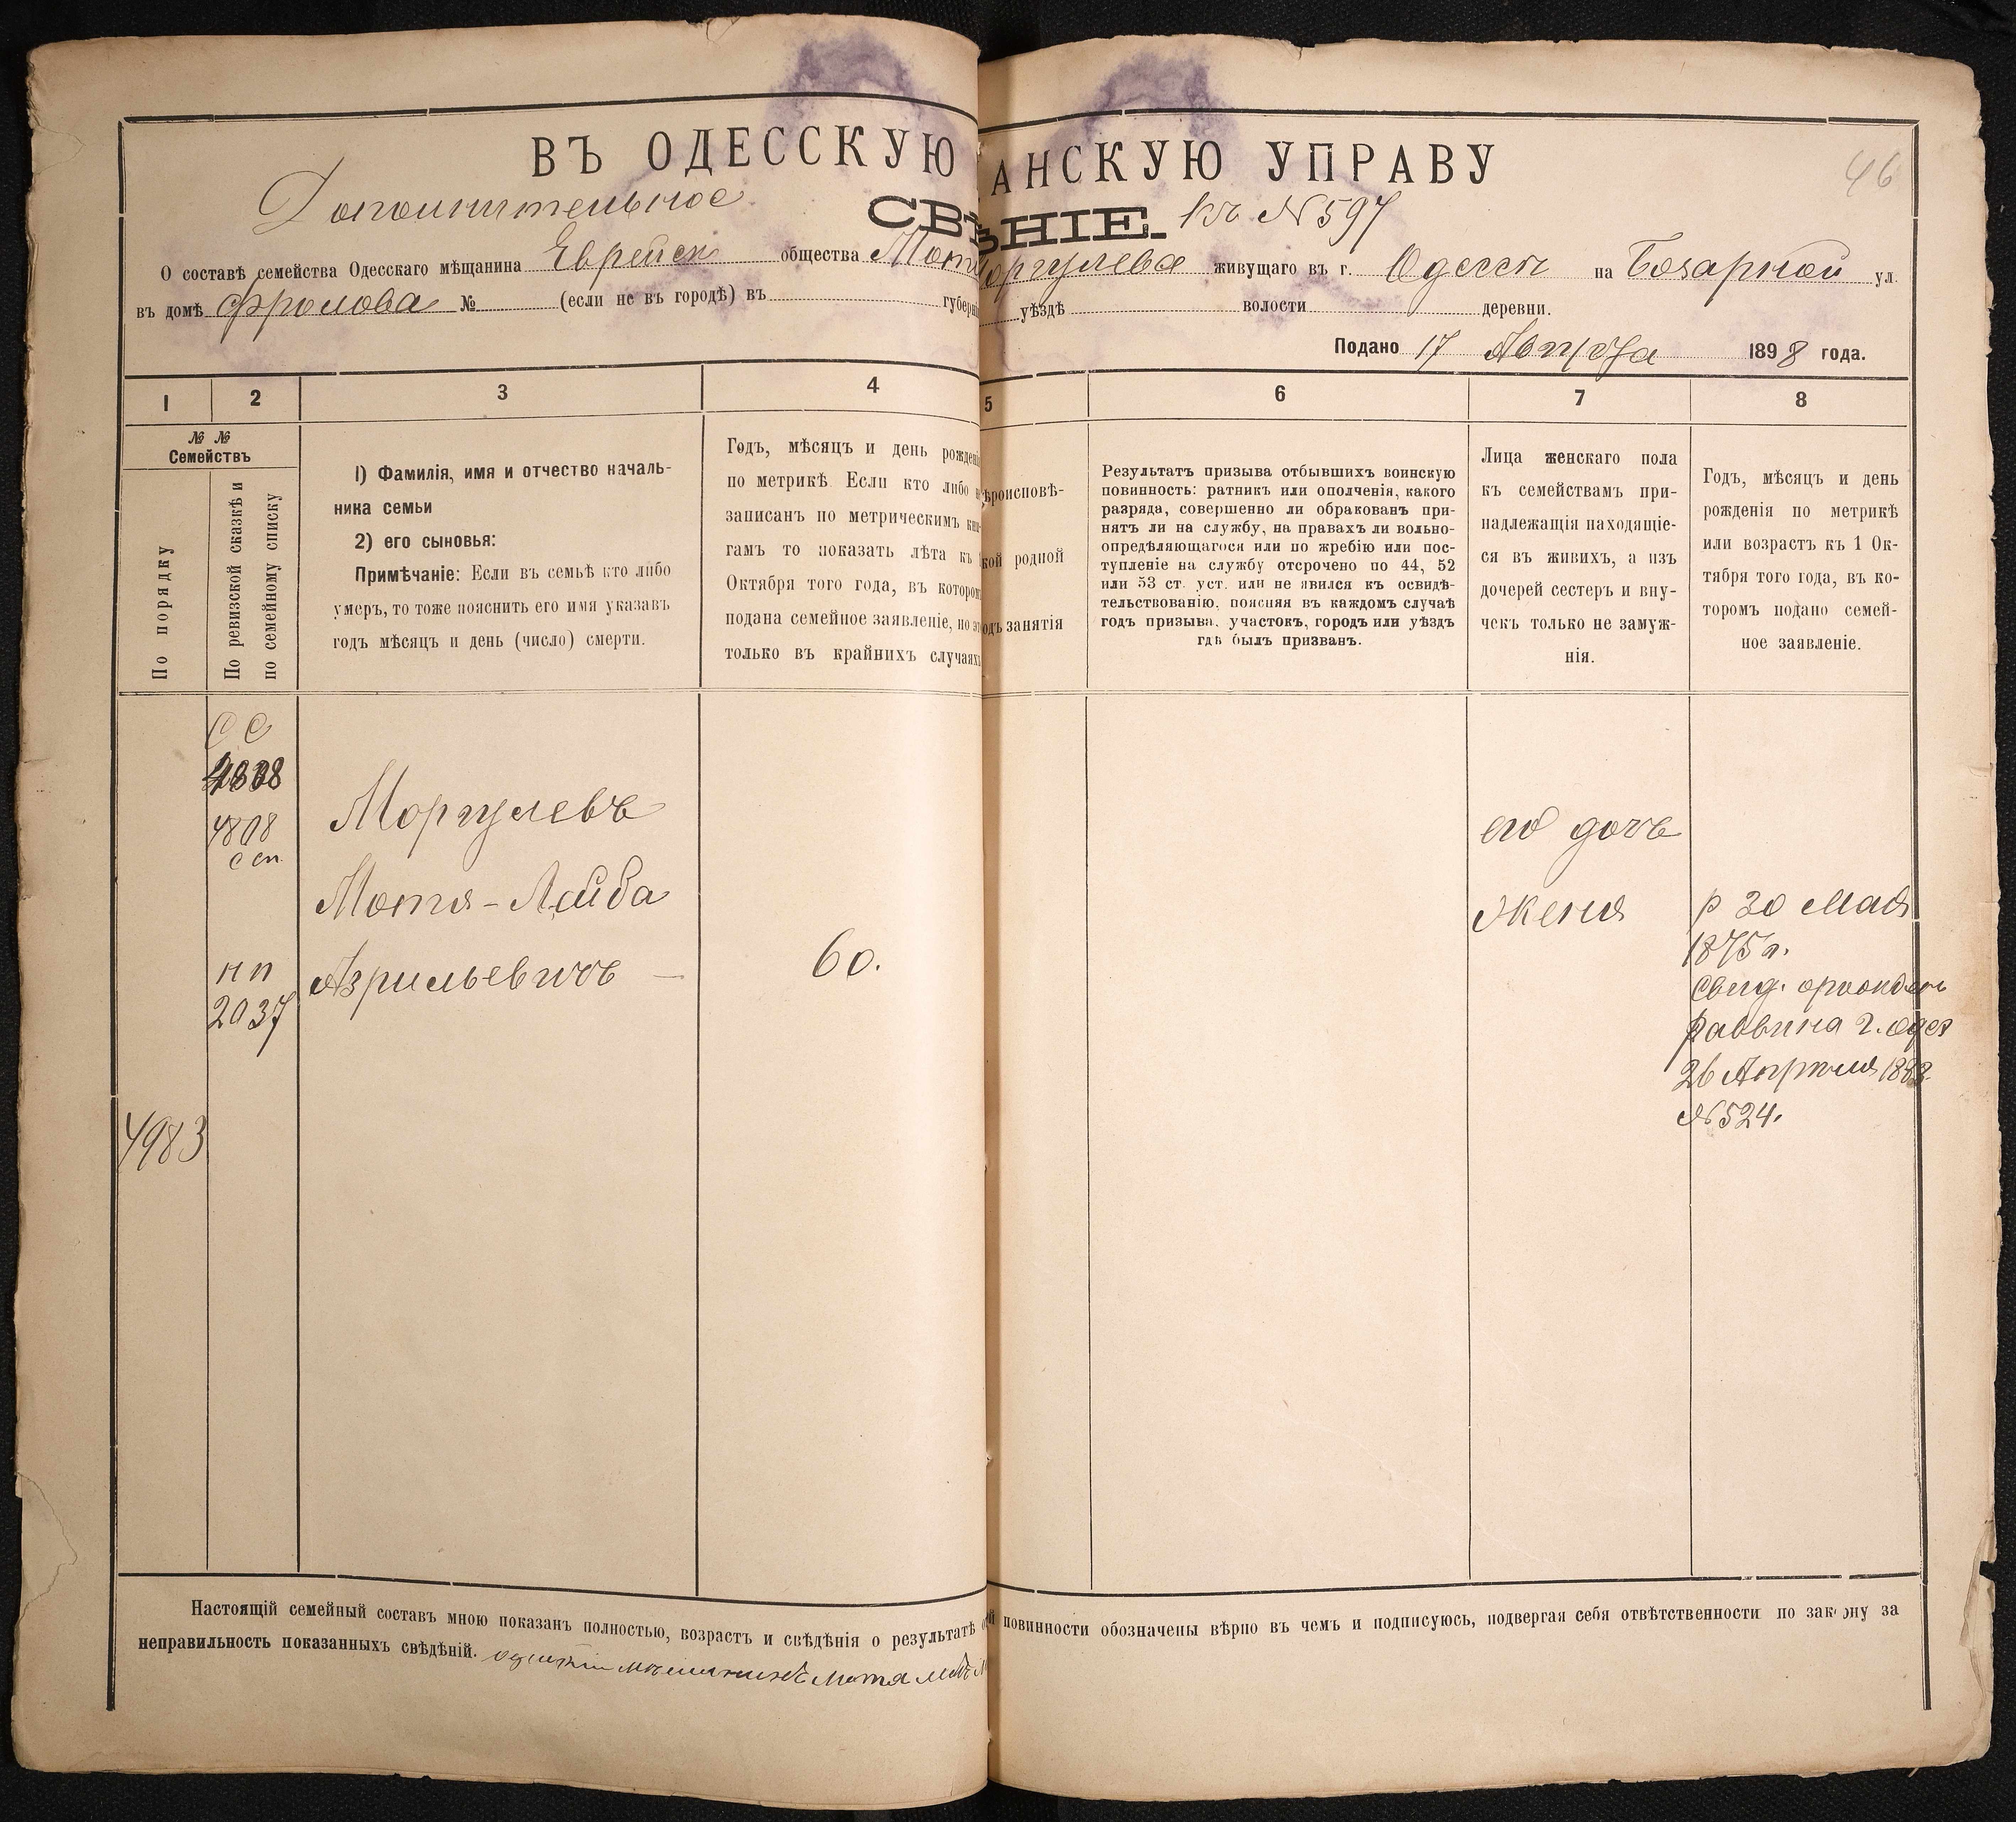 ВЪ ОДЕССКУЮ АНСКУЮ УПРАВУ
46
Дополнительное
СВѢ НІЕ. къ № 597
О составѣ семейства Одесскаго мѣщанина Еврейск общества Мотя Моргулева живущаго въ г. Одессѣ на Базарной ул.
въ домѣ Фролова № (если не въ городѣ) въ губерні уѣздѣ волости деревни.
Подано 17 Августа 1898 года.
1 2 3 4 5 6 7 8
№ №
Семействъ
По порядку
По ревизской сказкѣ и
по семейному списку
1) Фамилія, имя и отчество началь-
ника семьи
2) его сыновья:
Примѣчаніе: Если въ семьѣ кто либо
умеръ, то тоже пояснить его имя указавъ
годъ мѣсяцъ и день (число) смерти.
Годъ, мѣсяцъ и день рожденія
по метрикѣ Если кто либо не
записанъ по метрическимъ кни-
гамъ то показать лѣта къ
Октября того года, въ котором
подана семейное заявленіе, но эт
только въ крайнихъ случаяхъ
ѣроисповѣ-
кой родной
одъ занятія
Результатъ призыва отбывшихъ воинскую
повинность: ратникъ или ополченія, какого
разряда, совершенно ли обракованъ при-
нятъ ли на службу, на правахъ ли вольно-
опредѣляющагося или по жребію или пос-
тупленіе на службу отсрочено по 44, 52
или 53 ст. уст. или не явился къ освидѣ-
тельствованію, поясняя въ каждомъ случаѣ
годъ призыва, участокъ, городъ или уѣздъ
гдѣ былъ призванъ.
Лица женскаго пола
къ семействамъ при-
надлежащія находящіе-
ся въ живихъ, а изъ
дочерей сестеръ и вну-
чекъ только не замуж-
нія.
Годъ, мѣсяцъ и день
рожденія по метрикѣ
или возрастъ къ 1 Ок-
тября того года, въ ко-
торомъ подано семей-
ное заявленіе.
С С
4808
с сп.
нп
2037
4983
Моргулевъ
Мотя-Лейба
Азрильевичъ —
60.
его дочь
Женя
р 30 Мая
1875 г.
Свид.
Раввина г. Одес
26 Апрѣля
№ 524.
Настоящій семейный составъ мною показанъ полностью, возрастъ и свѣдѣнія о результатѣ о й повинности обозначены вѣрно въ чемъ и подписуюсь, подвергая себя отвѣтственности по закону за
неправильность показанныхъ свѣдѣній. мѣщанинъ Мотя